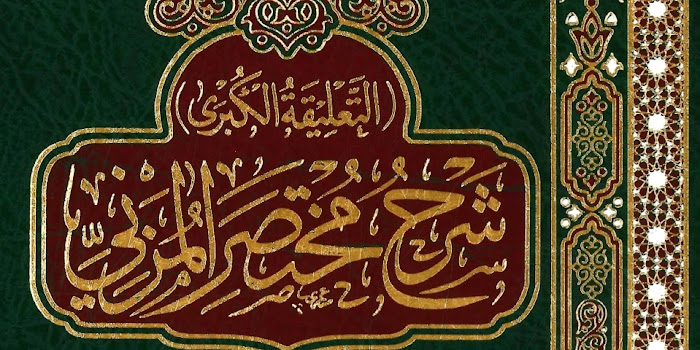 (التَّعْلِيقَةُ الْكُبْرَى)
شَرْحُ مُخْتَصَرِ الْمُزَنِيِّ